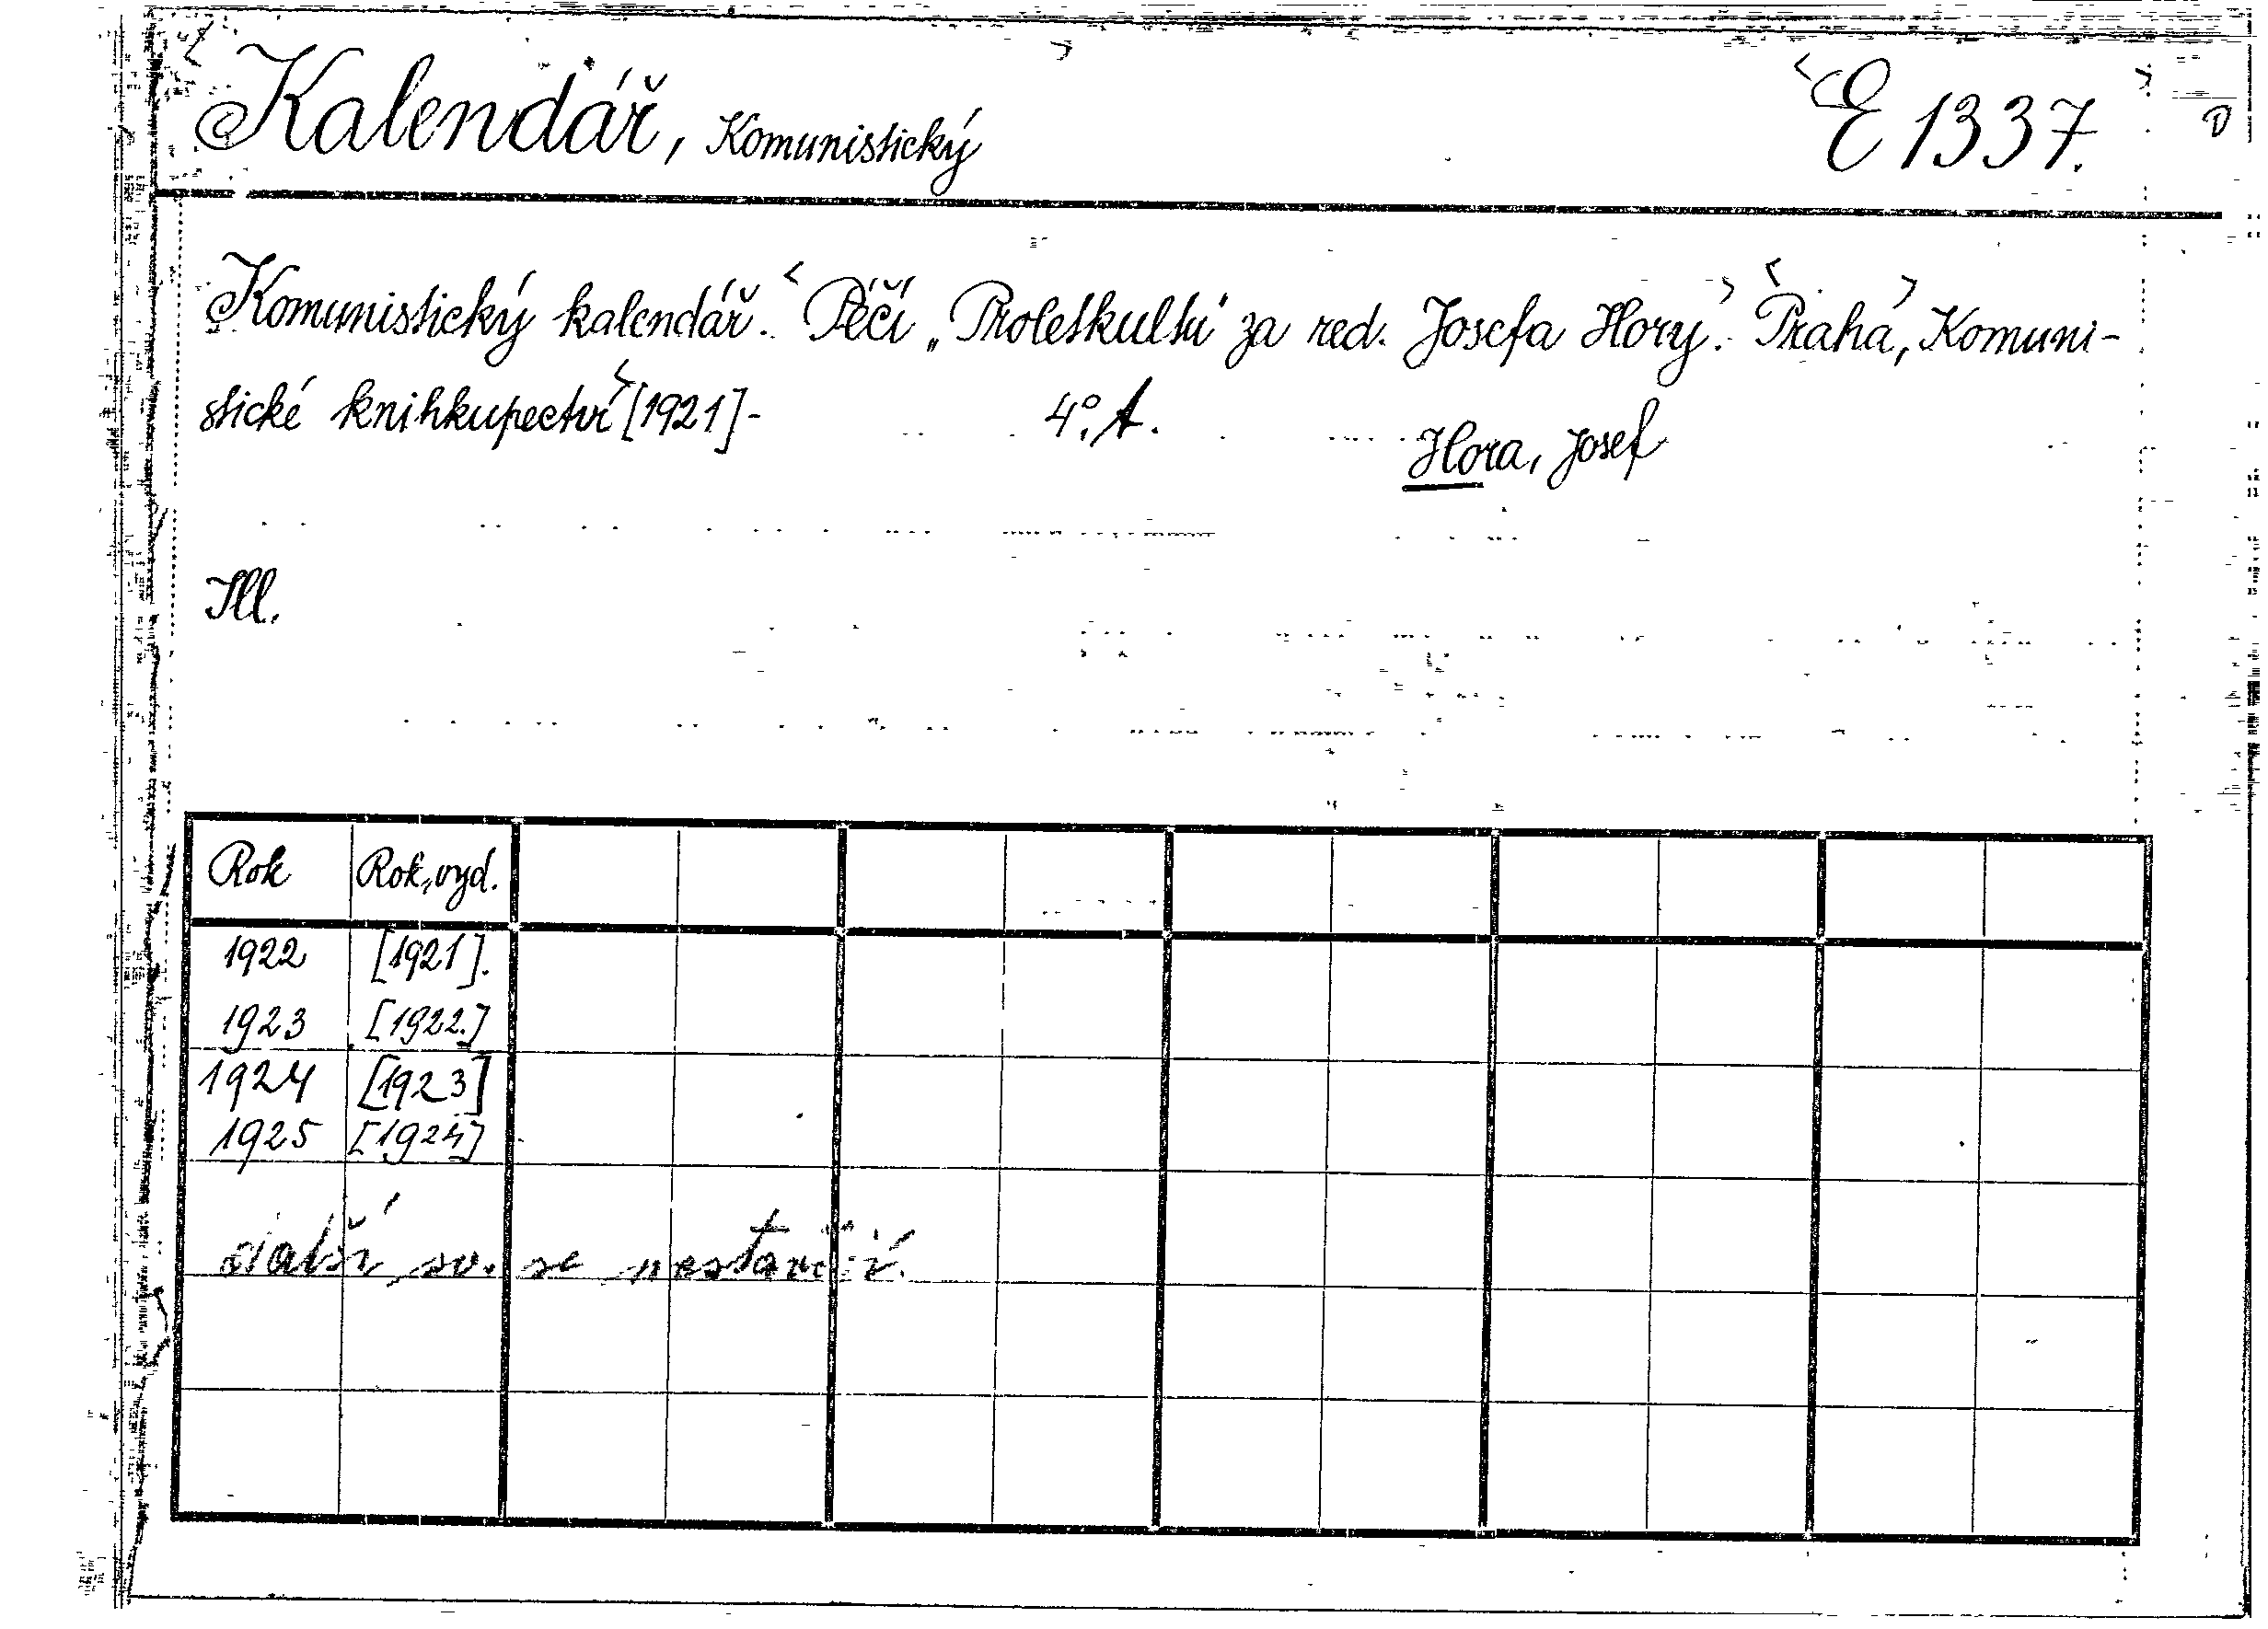 Kalendář, Komunistický E 1337.
Komunistický kalendář. Péčí „Proletkultu" za red. Josefa Hory. Praha, Komuni-
stické knihkupectví [1921]- 4°. A.
Hora, Josef
Ill.
Rok Rok, vyd.
1922 [1921].
1923 [1922.]
1924 [1923]
1925 [1924]
další sv. se